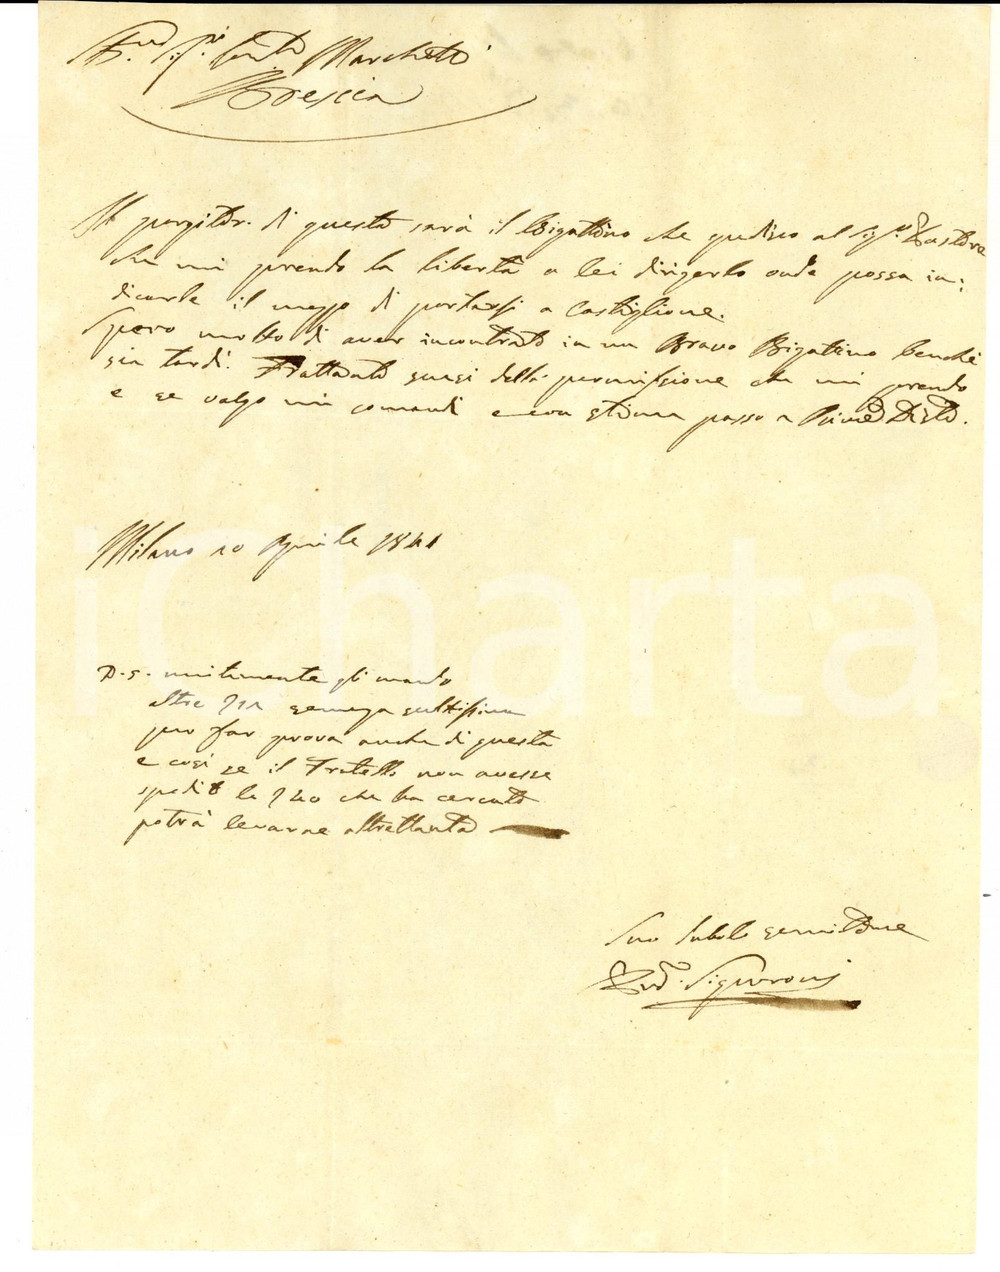 Marchetti
Brescia
Il porgitor. di questa sarà il Bigattino che spedisco al Sig.r Pastore
che mi prendo la libertà a lei dirigerlo onde possa in:
dicarle il mezzo di portarsi a Castiglione.
Spero molto di aver incontrato in un Bravo Bigatino benché
sia tardi. Frattanto scusi della permissione che mi prendo
e se valgo mi comandi e con stima passo a
Milano 10 Aprile 1841
P.S. unitamente gli mando
altre semenza
per far prova anche di questa
e così se il Fratello non avesse
spedito le che ha cercato
potrà levarne altrettanta
Suo servitore
Signoroni
iCharta